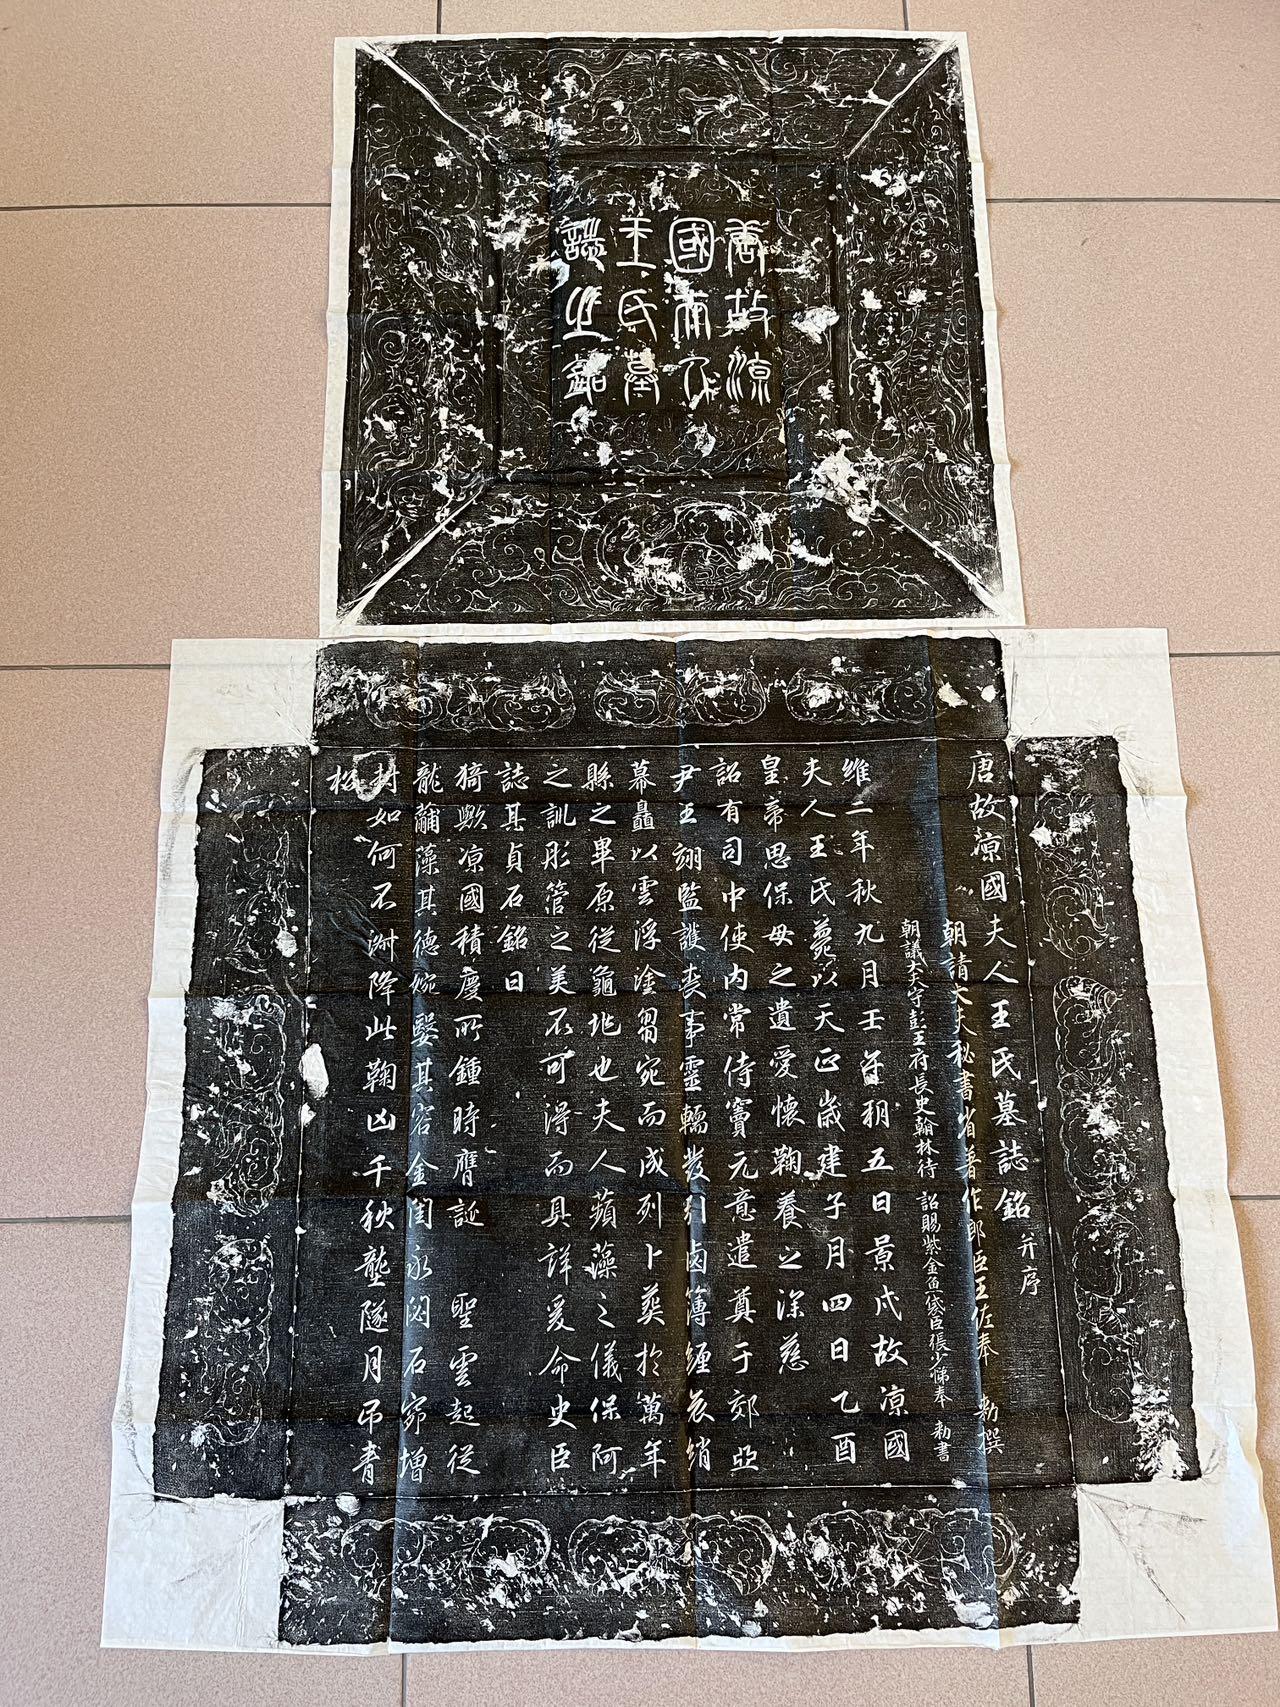 唐故涼
國夫人
王氏墓
誌之銘
唐故涼國夫人王氏墓誌銘 并序
朝請大夫秘書省著作郎臣王佐奉 勅撰
朝議大夫守彭王府長史翰林待 詔賜紫金魚袋臣張少悌奉 勅書
維二年秋九月壬午朔五日景戌故涼國
夫人王氏薨以天正歲建子月四日乙酉
皇帝思保母之遺愛懷鞠養之深慈
詔有司中使內常侍竇元意遣奠于郊亞
尹王翊監護喪事靈輀發引鹵簿纏哀綃
幕矗以雲浮塗芻宛而成列卜葬於萬年
縣之畢原從龜兆也夫人蘋藻之儀保阿
之訓彤管之美不可得而具詳爰命史臣
誌其貞石銘曰
猗歟涼國積慶所鍾時膺誕 聖雲起從
龍黼藻其德婉嫕其容金閨永閟石窌增
封如何不淑降此鞠凶千秋壟隧月吊青
松